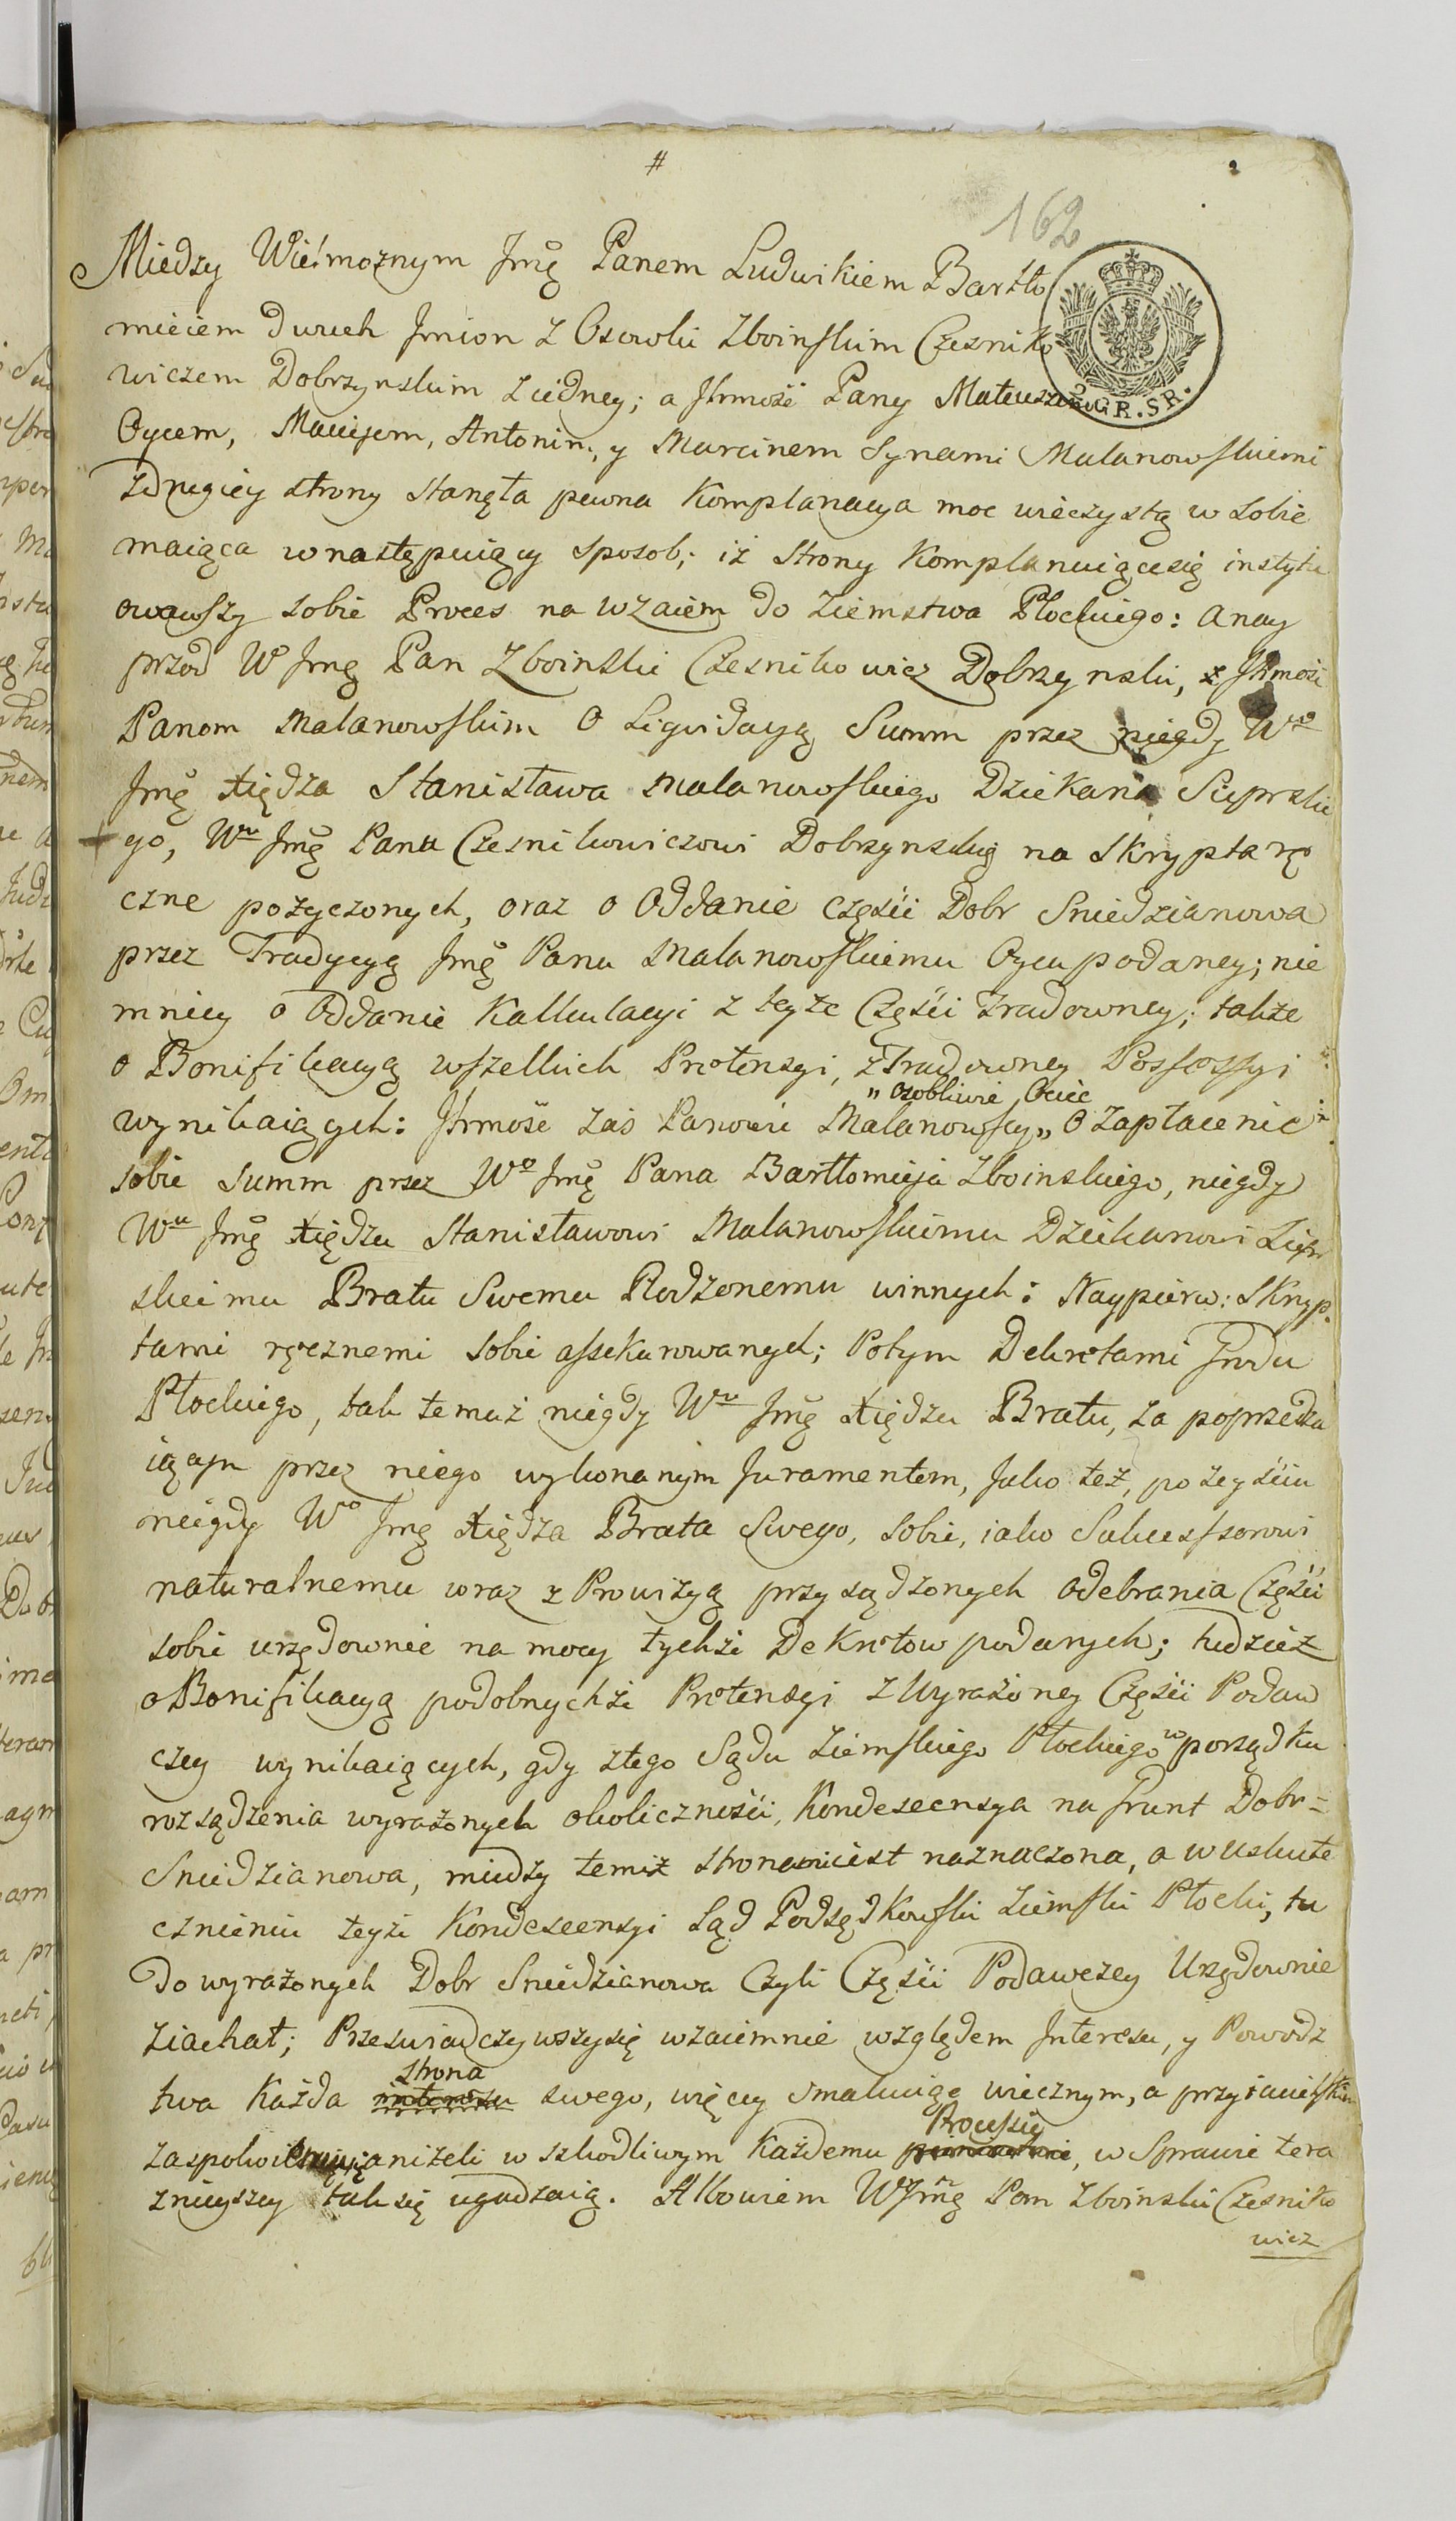 #
162
2. GR. SR.
Miedzy Wielmoznym Jmę Panem Ludwikiem Bartło
mieiem dwuch Jmion z Osowki Zboinskim Czesniko
wiczem Dobrzynskim z iedney; a Jchmość Pany Mateuszem
Oycem, Maciejem, Antonim, y Marcinem Synami Malanowskiemi
z drugiey strony stanęła pewna Komplanacya moc wieczystą w sobie
maiąca w następuiący sposob; iż Strony Komplanuiące się instytu
owawszy sobie Proces na wzaiem do Ziemstwa Płockiego: a nay
przod W Jmę Pan Zboinski Czesnikowicz Dobrzynski, z Jchmość
Panom Malanowskim o Liqvidacyą Summ przez niegdy Wgo
Jmę Xiędza Stanisława Malanowskiego Dziekana Sieprski
go, Wu Jmę Panu Czesnikowiczowi Dobrzynskiemu na Skrypta rę
czne pozyczonych, oraz o Oddanie części Dobr Sniedzianowa
przez Tradycyą Jmę Panu Malanowskiemu Oycu podaney; nie
mniey o Oddanie Kalkulacyi z teyże Części tradowney; takze
o Bonifikacyą wszelkich Pretensyi, z Tradowney Possessyi
wynikaiących: Jchmość zas Panowie Malanowscy „ o zapłacenie
„ osobliwie Ociec
sobie summ przez Wo Jmę Pana Bartłomieja Zboinskiego, niegdy
Wu Jmę Xiędzu Stanisławowi Malanowskiemu Dziekanowi Siepr
skiemu Bratu Swemu Rodzonemu winnych: Naypierw: Skryp.
tami ręcznemi sobie assekurowanych; Potym Dekretami Grodu
Płockiego, tak temuż niegdy Wu Jmę Xiędzu Bratu, za poprzedza
iącym przez niego wykonanym Juramentem, Jako też, po zeyściu
niegdy Wo Jmę Xiędza Brata Swego, sobie, iako Sukcessorowi
naturalnemu wraz z Prowizyą przysądzonych odebrania Części
sobie urzędownie na mocy tychże Dekretow podanych; tudzież
o Bonifikacyą podobnychże Pretensyi z Wyrażoney Części Podaw
czey wynikaiących, gdy z tego Sądu Ziemskiego Płockiego w porządku
rozsądzenia wyrażonych okoliczności, Kondescensya na Grunt Dobr=
Sniedzianowa, miedzy temiż stronami iest naznaczona, a w uskute
cznieniu teyże Kondescensyi Sąd Podsędkowski Ziemski Płocki, tu
Do wyrażonych Dobr Sniedzianowa Czyli Części Podawczey Urzędownie
ziachał; Przeswiadczywszy się wzaiemnie względem Interesu, y Powodz
twa Każda strona swego, więcey smakuiąc wiecznym, a przyiacielskim
zaspokoieniu, aniżeli w szkodliwym Każdemu Processie, w Sprawie tera
znieyszey tak się ugadzaią. Albowiem W Jmę Pan Zboinski Czesniko
wicz